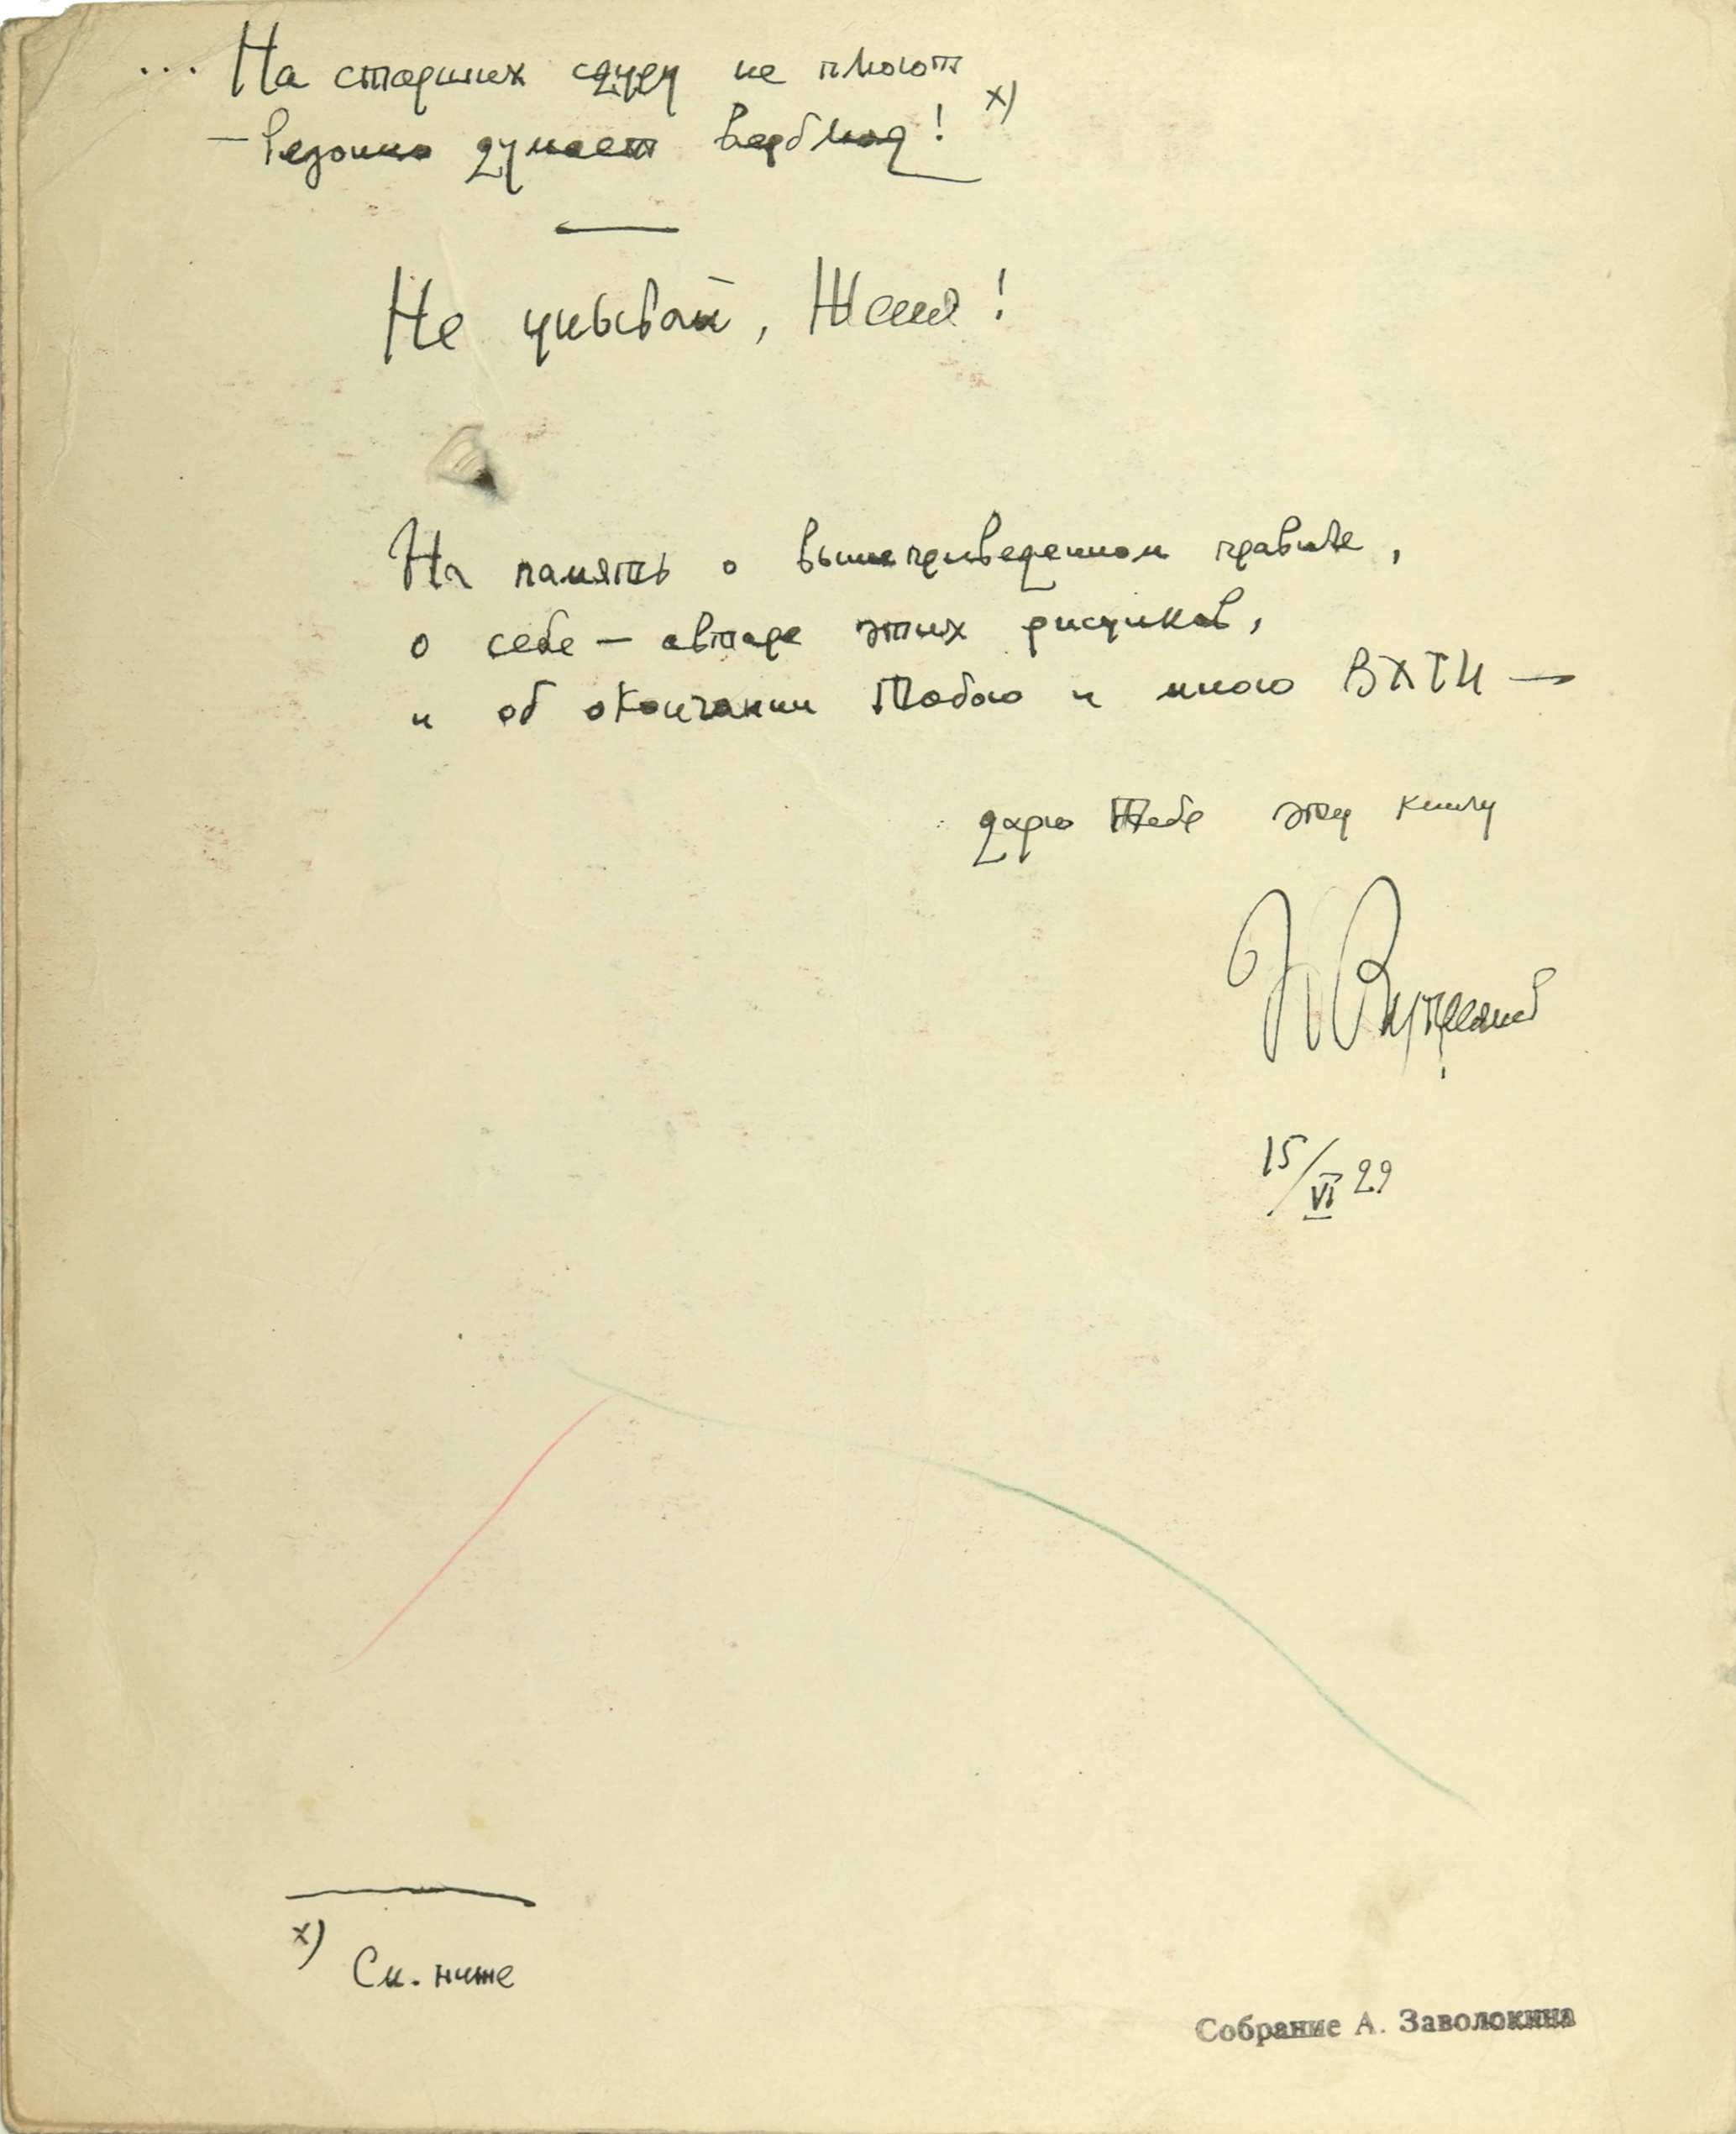 ... На старших сдуру не плюют х)
— Резонно думает верблюд!
Не унывай, Женя!
На память о вышеприведенном правиле,
о себе — авторе этих рисунков,
и об окончании Тобою и мною ВХТИ —
дарю Тебе эту книгу
15/VI 29
х) См. ниже
Собрание А. Заволокина